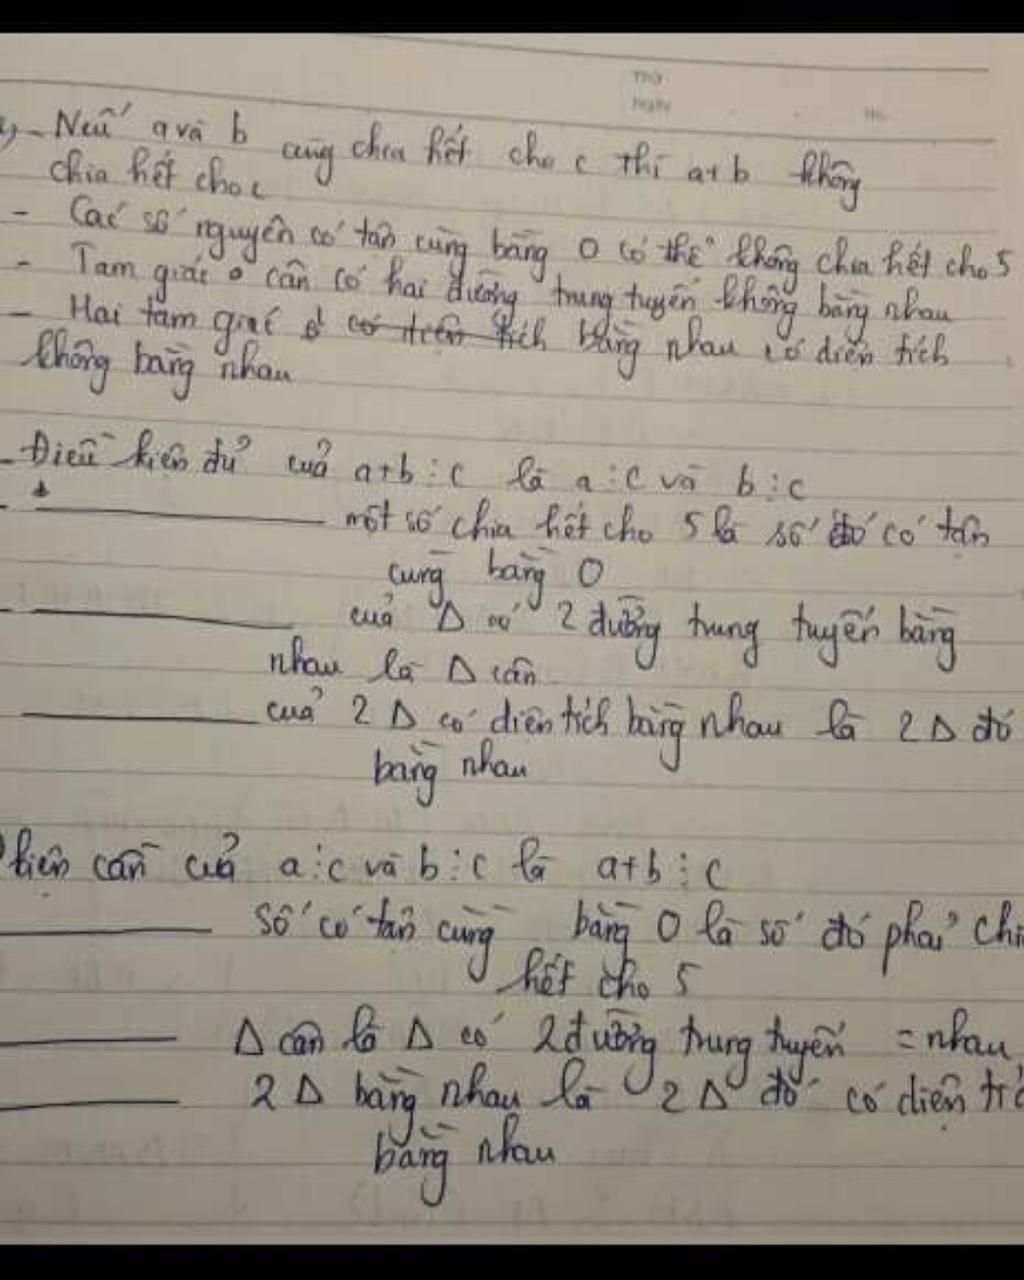 Thứ
Ngày
No.
a, - Nếu a và b cùng chia hết cho c thì a+b không
chia hết cho c
- Các số nguyên có tận cùng bằng 0 có thể không chia hết cho 5
- Tam giác cân có hai đường trung tuyến không bằng nhau
- Hai tam giác bằng nhau có diện tích
không bằng nhau
- Điều kiện đủ của a+b ⋮ c là a ⋮ c và b ⋮ c
- một số chia hết cho 5 là số đó có tận
cùng bằng 0
- của Δ có 2 đường trung tuyến bằng
nhau là Δ cân
của 2 Δ có diện tích bằng nhau là 2 Δ đó
bằng nhau
kiện cần của a ⋮ c và b ⋮ c là a+b ⋮ c
số có tận cùng bằng 0 là số đó phải chi
hết cho 5
Δ cân là Δ có 2 đường trung tuyến = nhau
2 Δ bằng nhau là 2 Δ đó có diện tí
bằng nhau